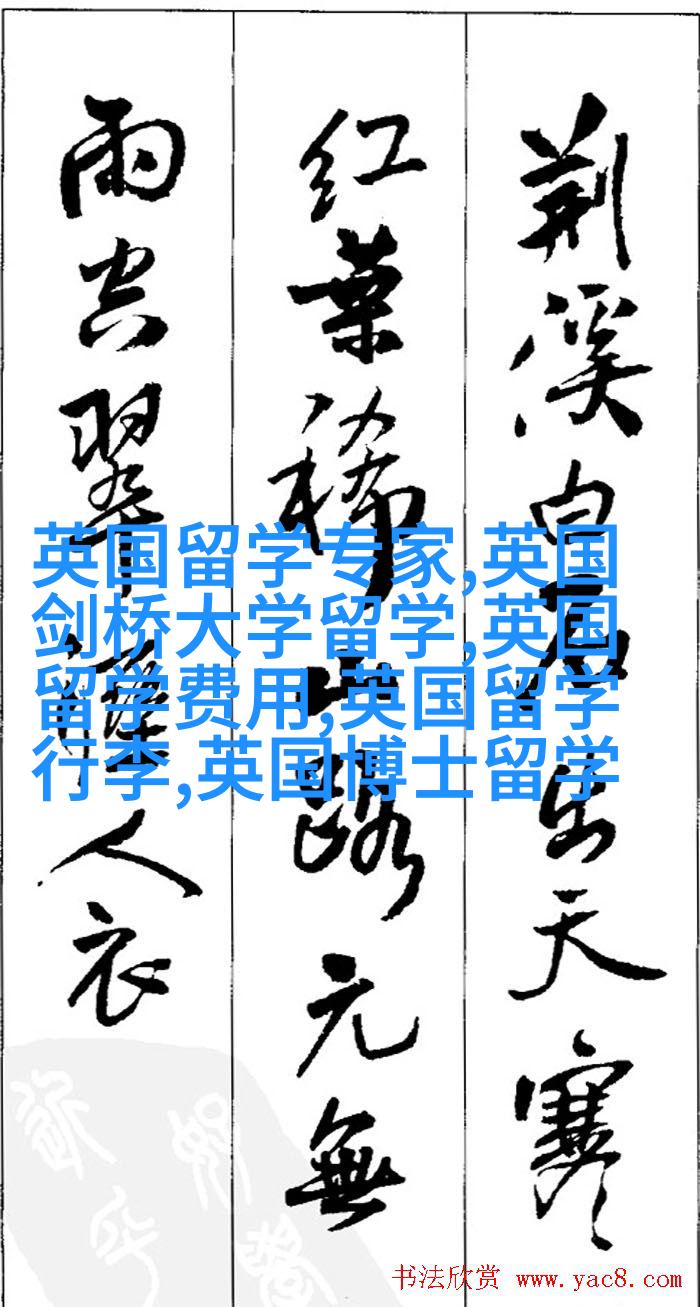 荆溪白石出天寒
红葉稀山路元無
雨空翠濕人衣
英国留学专家,英国
剑桥大学留学,英国
留学费用,英国留学
行李,英国博士留学
书法欣赏 www.yac8.com